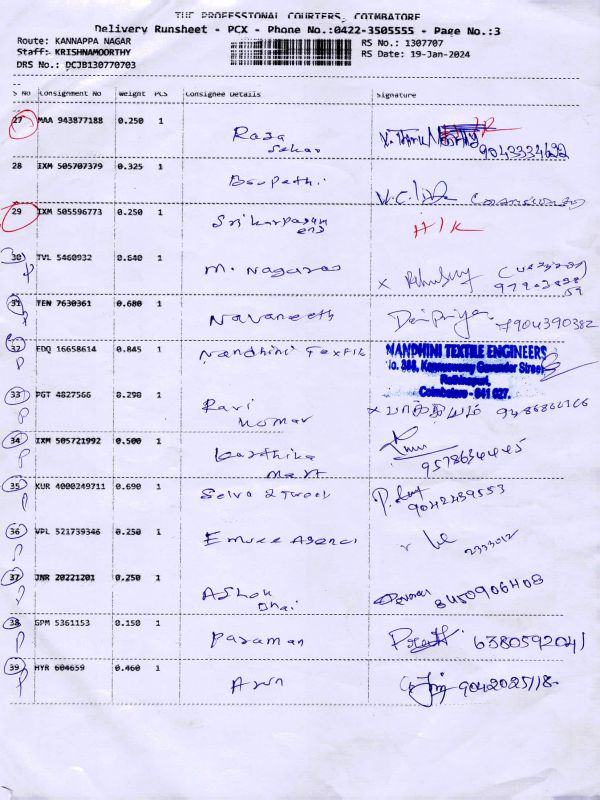 THE PROFESSIONAL COURIERS, COIMBATORE
Delivery Runsheet - PCX - Phone No.:0422-3505555 - Page No.:3
Route: KANNAPPA NAGAR RS No.: 1307707
Staff: KRISHNAMOORTHY RS Date: 19-Jan-2024
DRS No.: DCJB130770703
S No Consignment No Weight PCS Consignee Details Signature
27 MAA 943877188 0.250 1 Raja
Sekar
28 IXM 505707379 0.325 1 Boopathi
29 IXM 505596773 0.250 1 H/K
30 TVL 5460932 0.640 1 M. Nagaraj
P
31 TEN 7630361 0.680 1 Navaneeth 7904390382
P
32 EDQ 16658614 0.845 1 Nandhini Textile NANDHINI TEXTILE ENGINEERS
P No. 388, Kannuswamy Gounder Street
Rathinapuri,
Coimbatore - 641 027.
33 PGT 4827566 0.290 1 Ravi
P Kumar
34 IXM 505721992 0.500 1 Karthika
P Mart 9578634445
35 KUR 4000249711 0.690 1 9042439553
P
36 VPL 521739346 0.250 1 Emvee Agenci 2333012
P
37 JNR 20221201 0.250 1 Ashok 8450906408
P Bhai
38 GPM 5361153 0.150 1 Paraman 6380592041
P
39 HYR 604659 0.460 1 Arun 9042025118
P